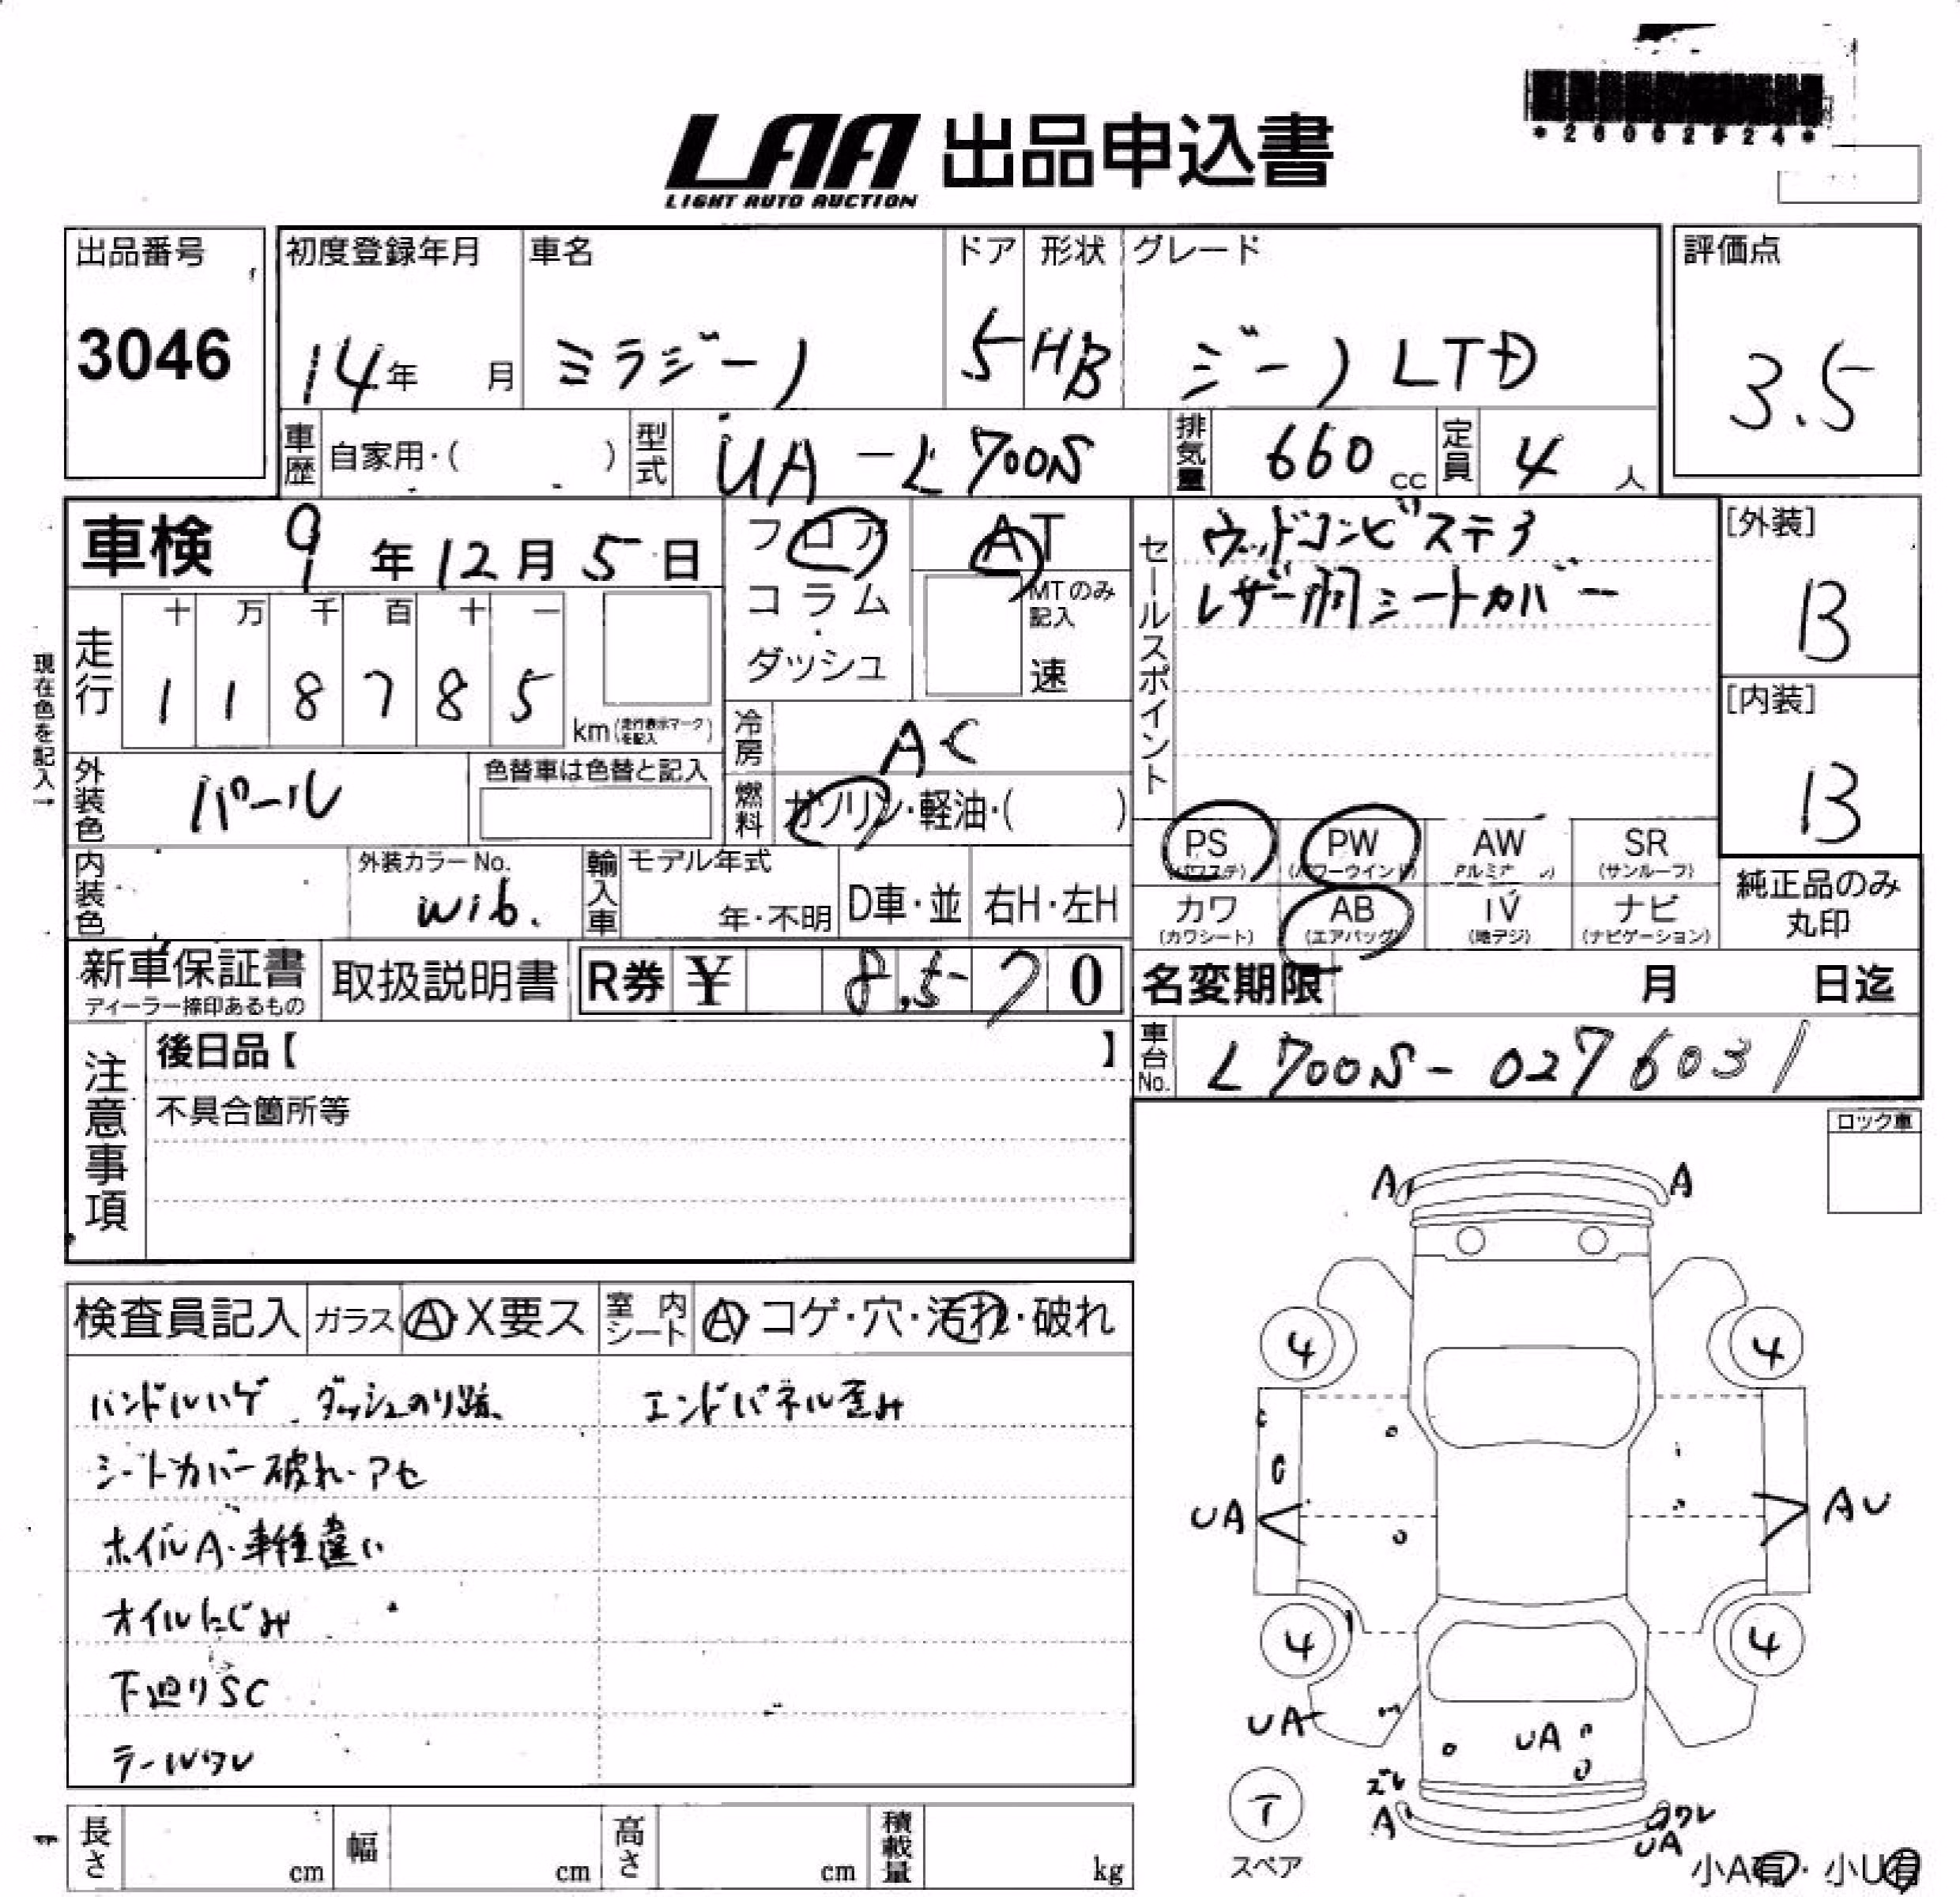 *26062924*
LAA 出品申込書
LIGHT AUTO AUCTION
出品番号 初度登録年月 車名 ドア 形状 グレード 評価点
3046 14年 月 ミラジーノ 5 HB ジーノLTD 3.5
車歴 自家用・( ) 型式 UA-L700S 排気量 660 cc 定員 4 人
車検 9年12月5日 フロア AT セールスポイント ウッドコンビステア [外装]
コラム・ MTのみ記入 レザー調シートカバー B
ダッシュ 速
現在色を記入→
走行 十 万 千 百 十 一
1 1 8 7 8 5 km (走行表示マークを記入) [内装]
冷房 AC B
外装色 パール 色替車は色替と記入 燃料 ガソリン・軽油・( )
PS (パワステ) PW (パワーウインド) AW SR (サンルーフ)
内装色 外装カラーNo. W16. 輸入車 モデル年式 年・不明 D車・並 右H・左H
カワ (カワシート) AB (エアバッグ) TV (地デジ) ナビ (ナビゲーション) 純正品のみ丸印
新車保証書 ディーラー捺印あるもの 取扱説明書 R券 ¥ 8,570 名変期限 月 日迄
車台No. L700S-0276031
注意事項 後日品【 】
不具合箇所等
ロック車
A A
検査員記入 ガラス A・X要ス 室内シート A・コゲ・穴・汚れ・破れ
4 4
ハンドルハゲ ダッシュのり跡 エンドパネル歪み
シートカバー破れ・アセ
UA AU
ホイルA・車種違い
オイルにじみ
4 4
下廻りSC
UA UA
テールワレ
ズレ
T
A ワレ
UA
スペア
小A有・小U有
長さ cm 幅 cm 高さ cm 積載量 kg